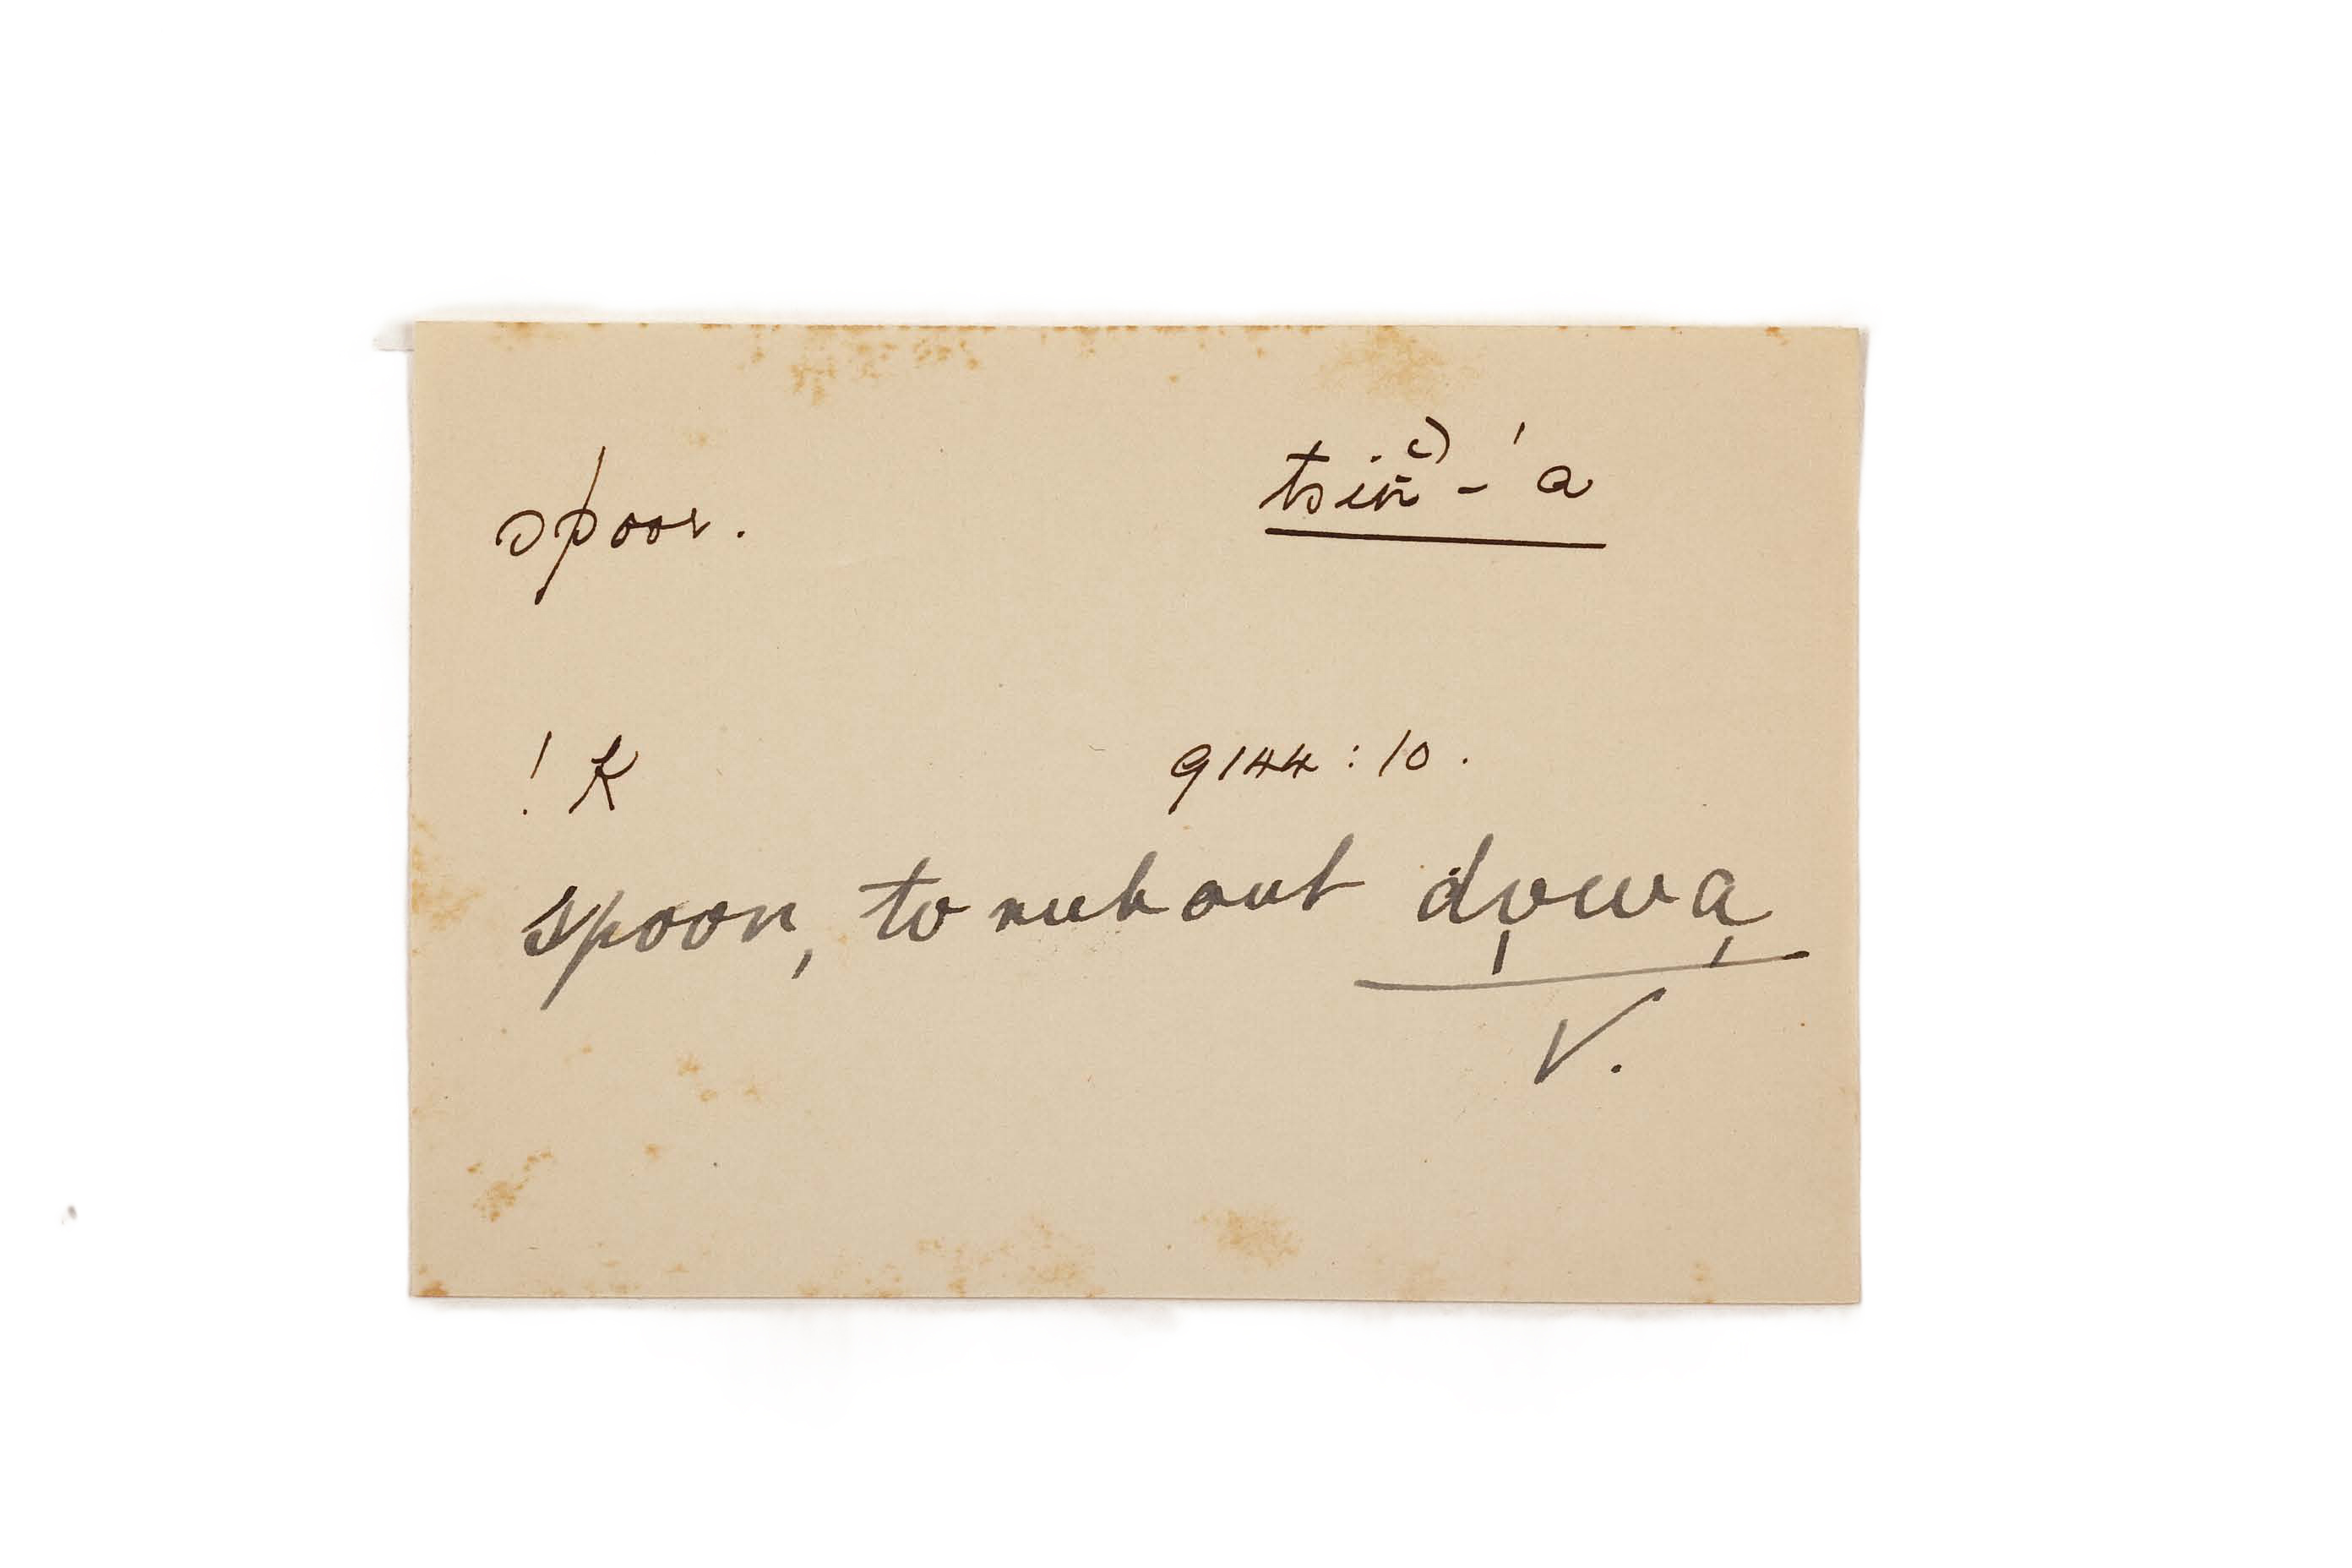 spoor. tsin̄̆⁾ - ' a
! K 9144 : 10 .
spoor, to rub out do̩wa̩
V.